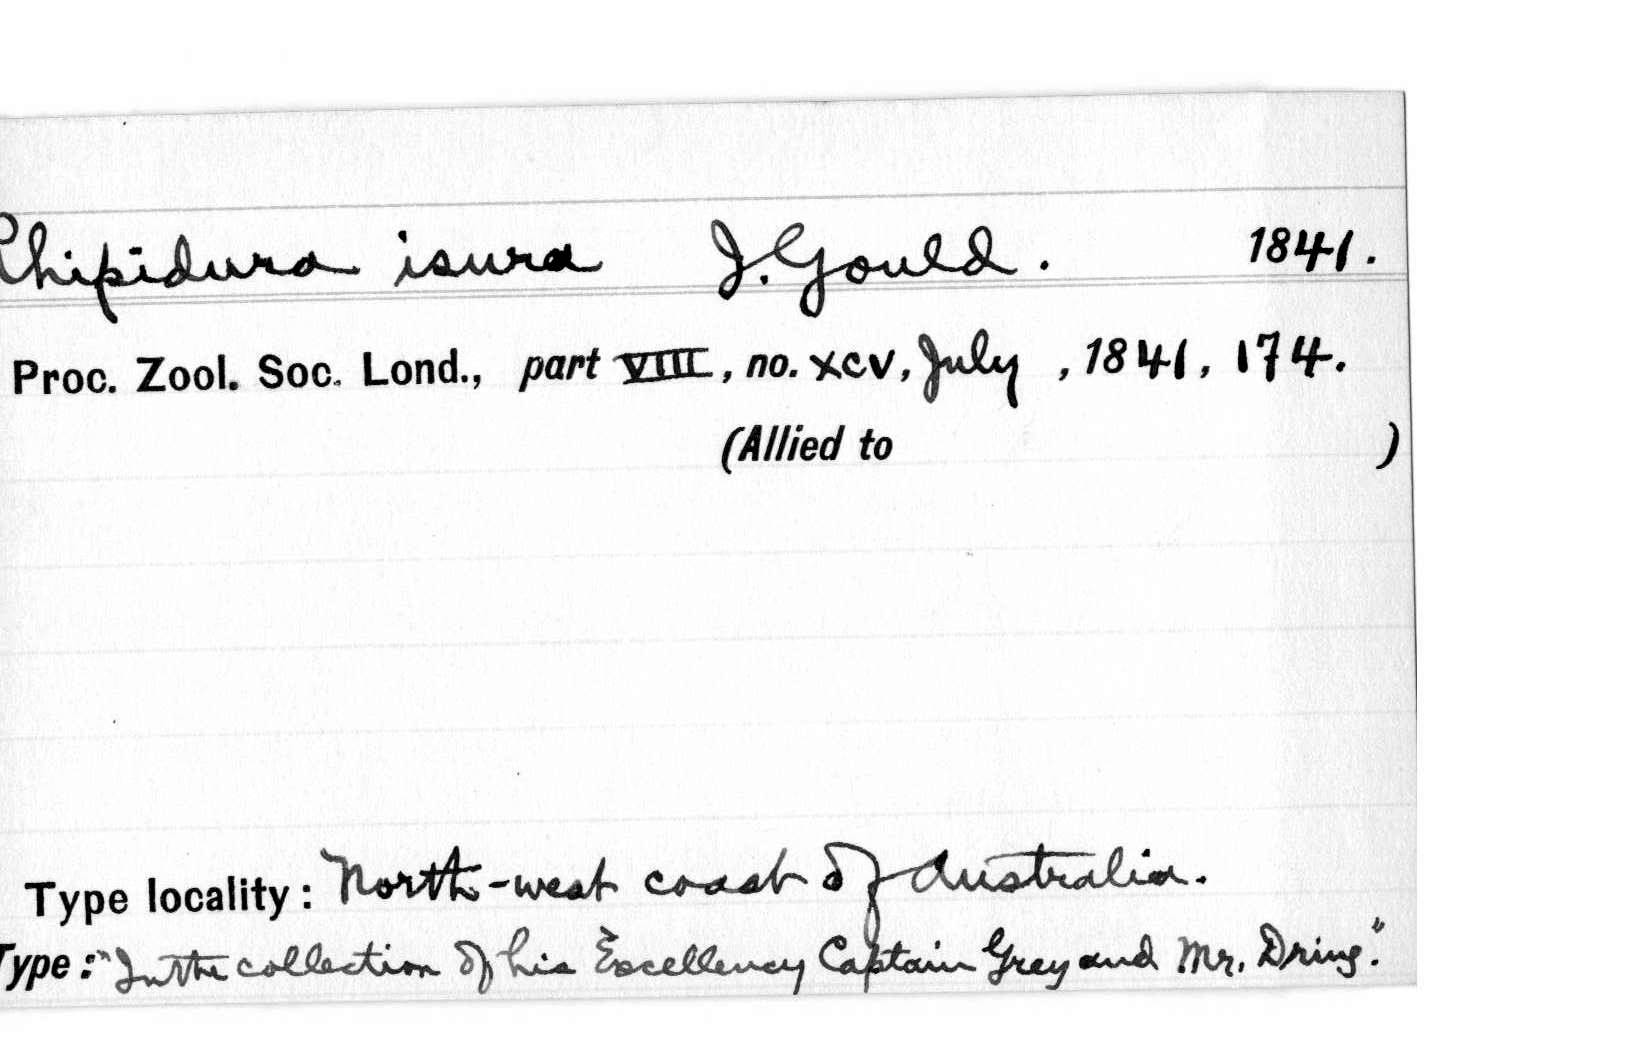 Rhipidura isura J. Gould. 1841.
Proc. Zool. Soc. Lond., part VIII, no. xcv, July, 1841, 174.
(Allied to )
Type locality: North-west coast of Australia.
Type: "In the collection of his Excellency Captain Grey and Mr. Dring."